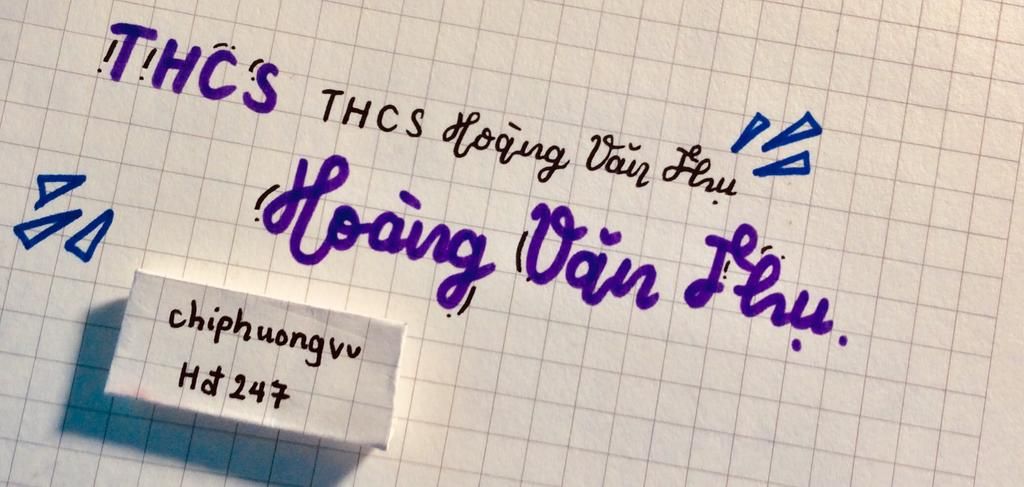 THCS
THCS Hoàng Văn Thụ
Hoàng Văn Thụ.
chiphuongvu
Hđ 247